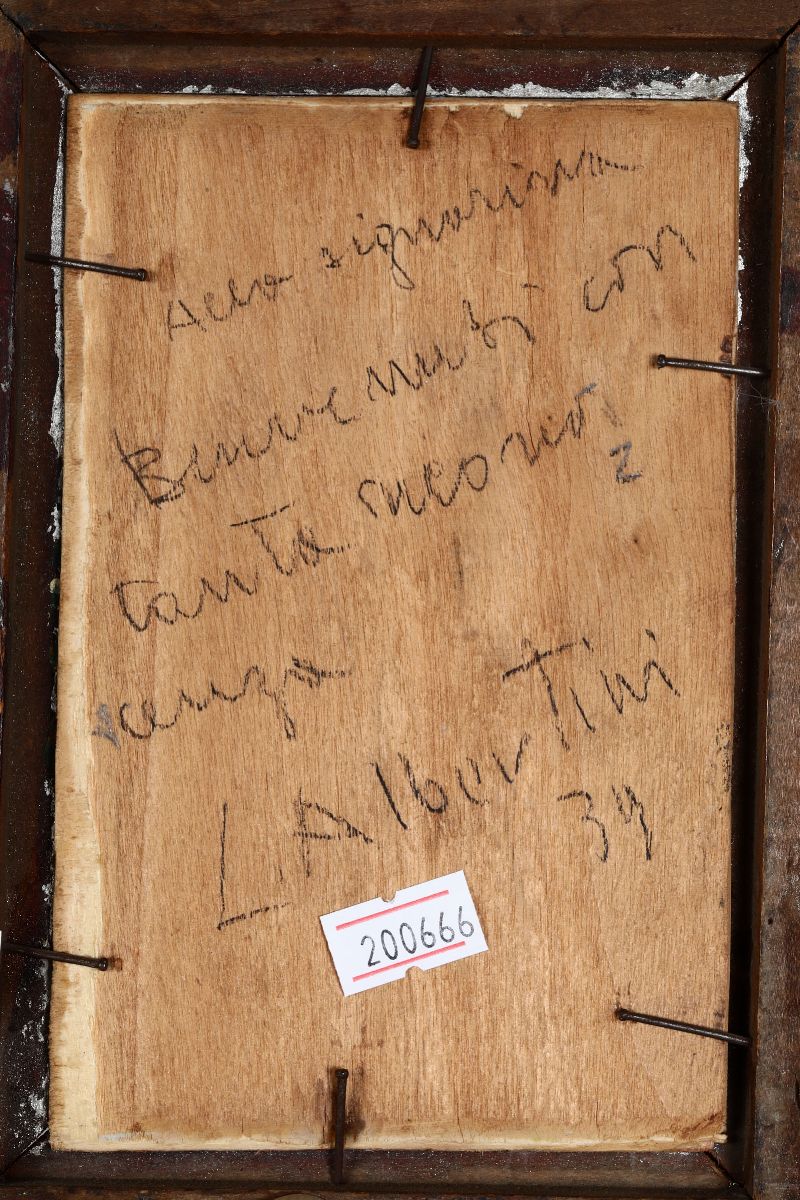 Alla signorina
Benvenuti con
tanta ricono
2
scenza
L Albertini
39
200666